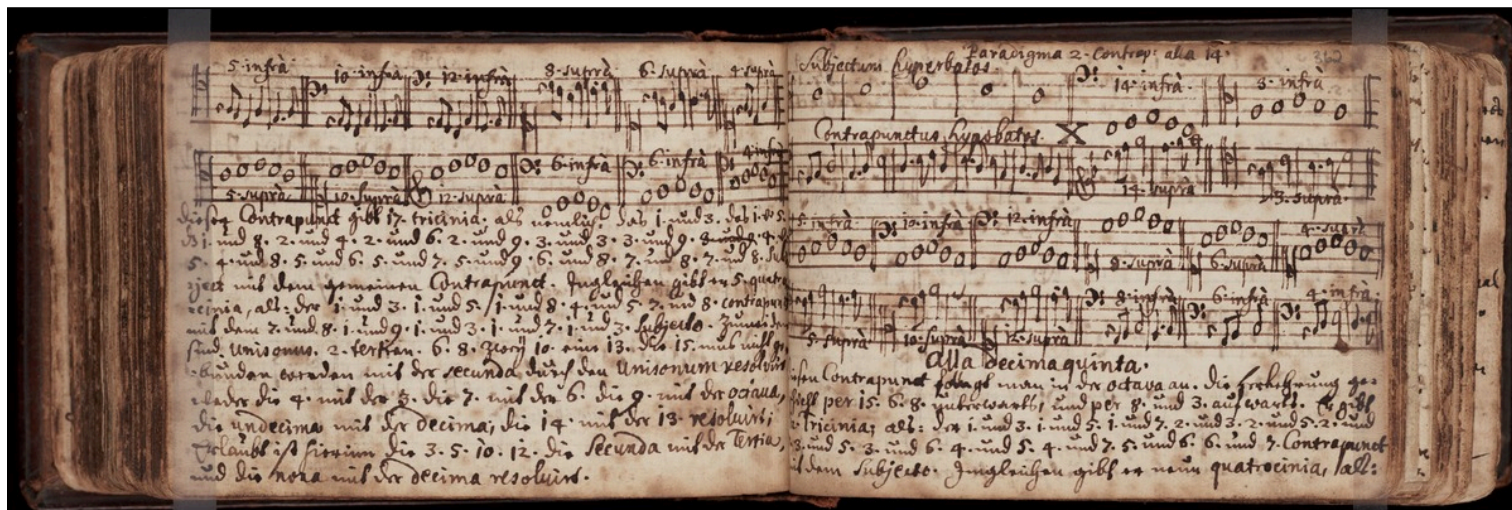 5. infrà 10. infrà 12. infrà 8. suprà 6. suprà 4. suprà
6. infrà 6. infrà 4. infrà
5. suprà. 10. Suprà 12. suprà
dieser Contrapunct gibt 17. tricinia. als nemlich das 1. und 3. das 1. 5.
1. und 8. 2. und 4. 2. und 6. 2. und 9. 3. und 3. 3. und 9. 4.
5. 4. und 8. 5. und 6. 5. und 7. 5. und 9. 6. und 8. 7. und 8. 7. und 8. Sub
ject mit dem gemeinen Contrapunct. Ingleichen gibt er 5. quatro
cinia, als: der 1. und 3. 1. und 5. 1. und 8. 4. und 5. 7. und 8. contrapunct
mit dem 7. und 8. 1. und 9. 1. und 3. 1. und 7. 1. und 3. Subjecto.
sind. Unisonus. 2. tertien. 6. 8. zwey 10. eine 13. die 15. mus nicht ge
bunden werden mit der secunda durch den Unisonum resolvirt
wieder die 4. mit der 3. die 7. mit der 6. die 9. mit der octava,
die undecima mit der decima, die 14. mit der 13. resolvirt;
Erlaubt ist hierinn die 3. 5. 10. 12. die Secunda mit der Tertia,
und die nona mit der decima resolvirt.
Paradigma 2. Contrap: alla 14.
Subjectum hyperbatos. 312
14. infrà. 3. infrà
Contrapunctus hypobatos. X
14. suprà 13. suprà.
5. infrà 10. infrà 12. infrà 4. suprà
8. suprà 6. suprà
8. infrà 6. infrà 4. infrà
5. suprà 10. suprà 12. suprà
alla decima quinta.
diesen Contrapunct fangt man in der octava an. die Verkehrung ge
schieht per 15. 6. 8. unterwarts, und per 8. und 3. aufwarts. Er gibt
tricinia; als: der 1. und 3. 1. und 5. 1. und 7. 2. und 3. 2. und 5. 2. und
3. und 5. 3. und 6. 4. und 5. 4. und 7. 5. und 6. 6. und 7. Contrapunct
mit dem Subjecto. Ingleichen gibt er neun quatrocinia, als: